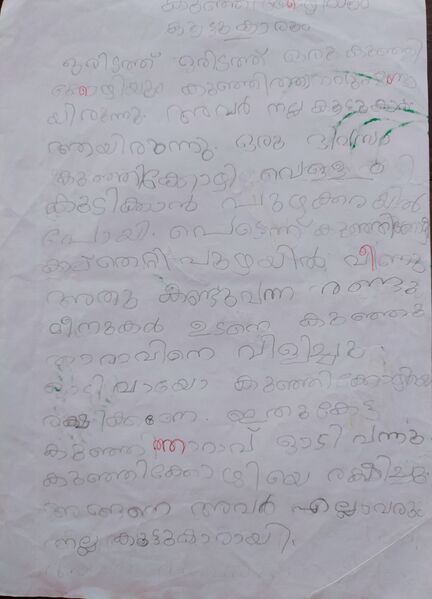 കുഞ്ഞിക്കോഴിയും
കൂട്ടുകാരും
ഒരിടത്ത് ഒരിടത്ത് ഒരു കുഞ്ഞി
കോഴിയും കുഞ്ഞിത്താറാവുമുണ്ടാ
യിരുന്നു. അവർ നല്ല കൂട്ടുകാർ
ആയിരുന്നു. ഒരു ദിവസം
കുഞ്ഞിക്കോഴി വെള്ളം
കുടിക്കാൻ പുഴക്കരയിൽ
പോയി. പെട്ടെന്ന് കുഞ്ഞിക്കോഴി
കാല്തെറ്റി പുഴയിൽ വീണു
അതു കണ്ടുവന്ന രണ്ടു
മീനുകൾ ഉടനെ കുഞ്ഞു
താറാവിനെ വിളിച്ചു.
ഓടി വായോ കുഞ്ഞിക്കോഴിയെ
രക്ഷിക്കണേ. ഇതുകേട്ട
കുഞ്ഞു ത്താറാവ് ഓടി വന്നു
കുഞ്ഞിക്കോഴിയെ രക്ഷിച്ചു.
അങ്ങനെ അവർ എല്ലാവരും
നല്ല കൂട്ടുകാരായി.